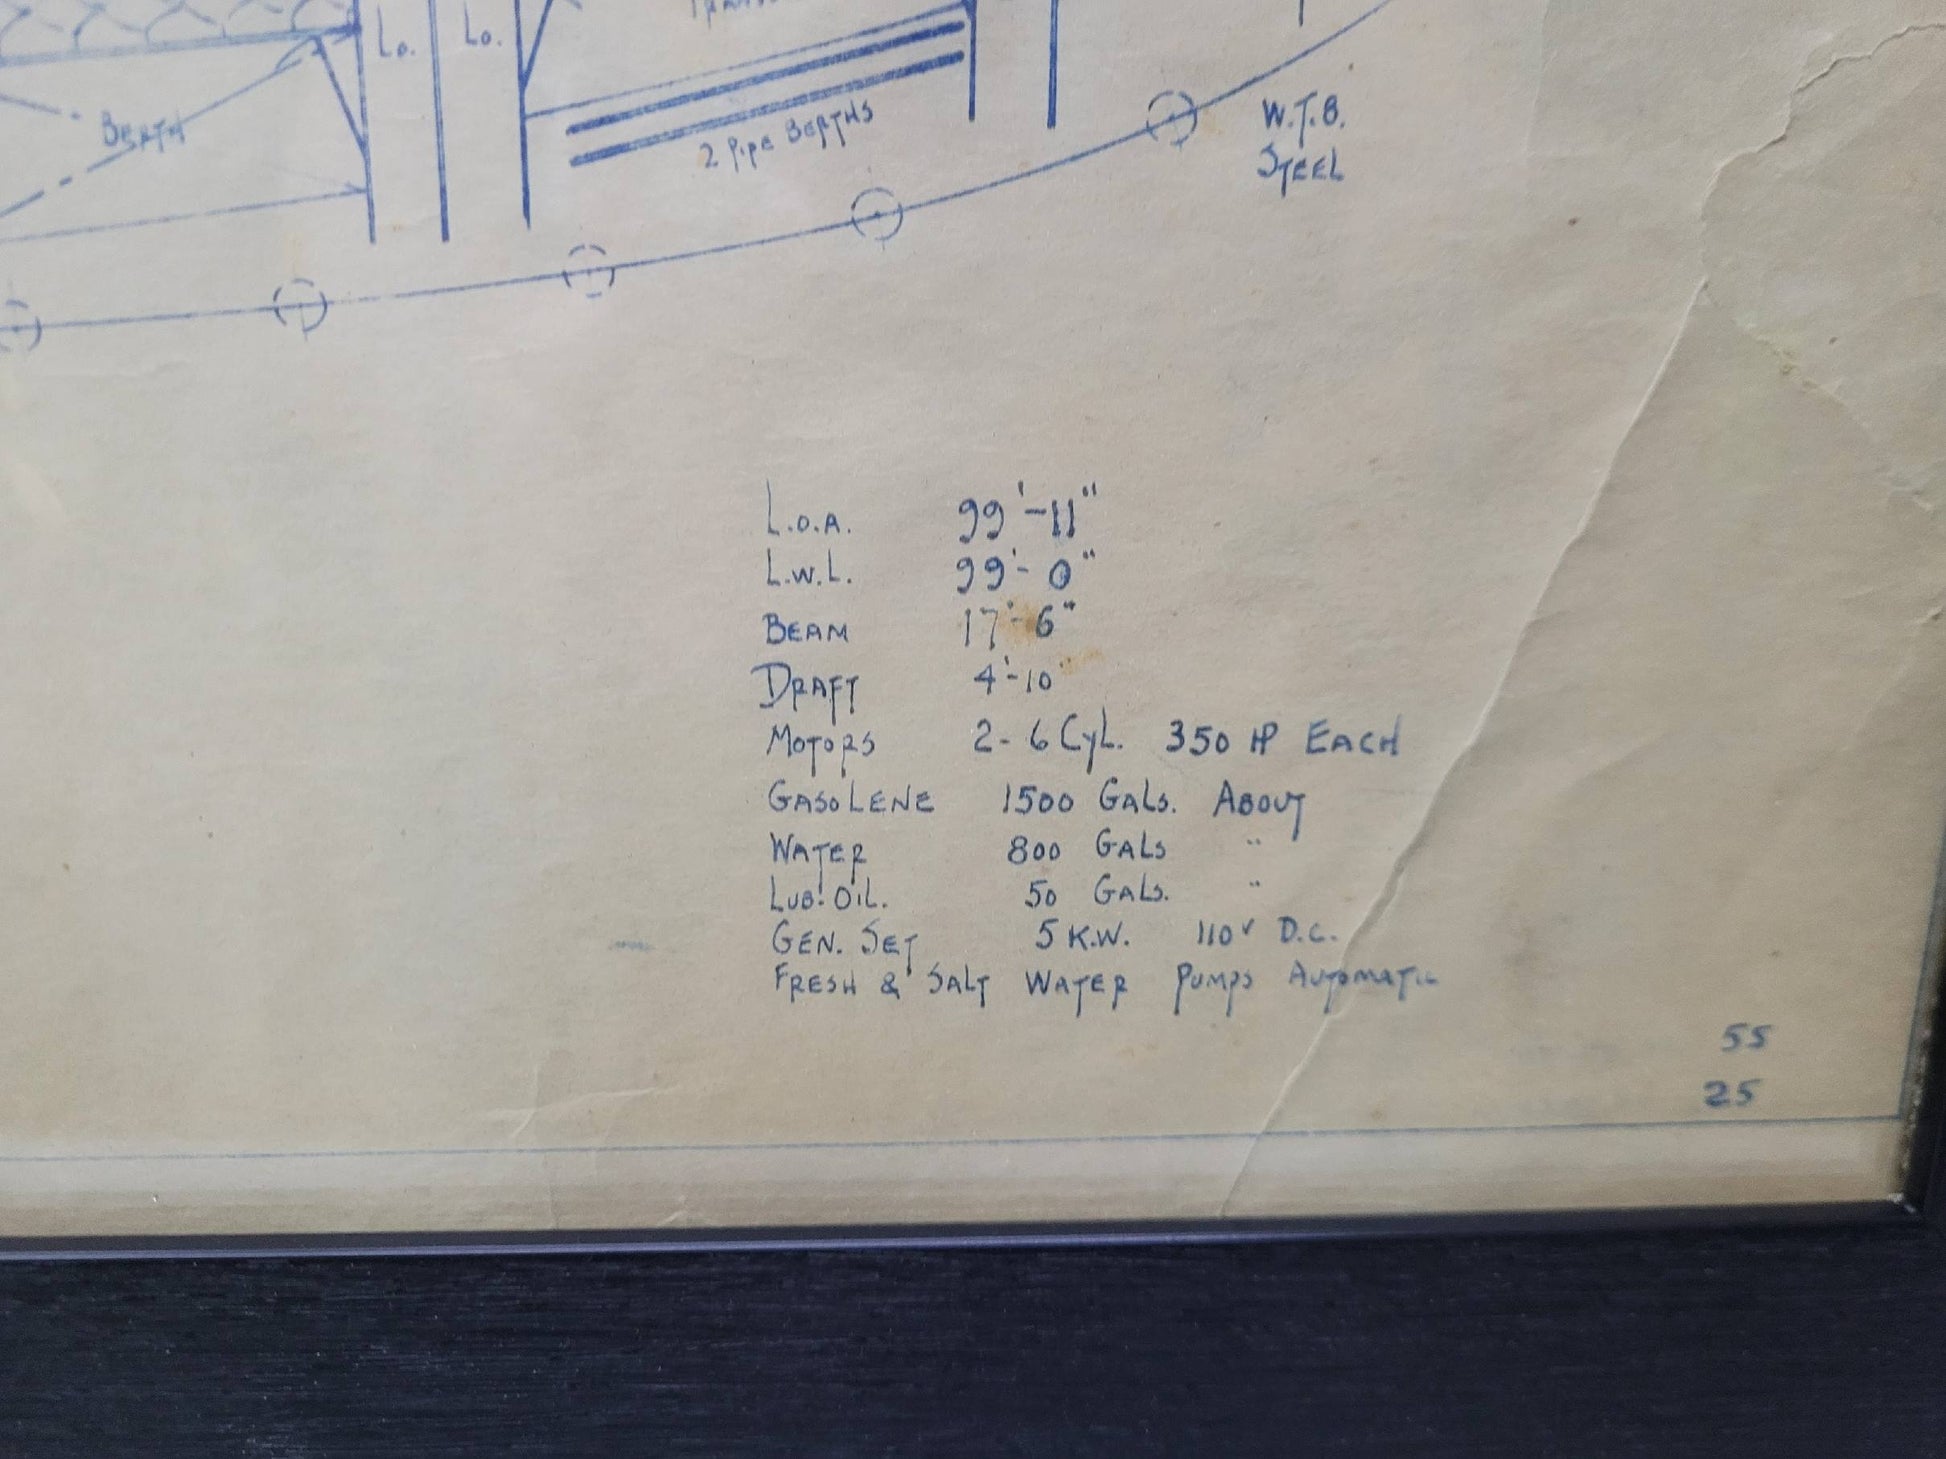 Lo.
Lo.
BERTH
2 PIPE BERTHS
W.T.B.
STEEL
L.O.A. 99'-11"
L.W.L. 99'-0"
BEAM 17'-6"
DRAFT 4'-10"
MOTORS 2-6 CYL. 350 HP EACH
GASOLENE 1500 GALS. ABOUT
WATER 800 GALS "
LUB. OIL. 50 GALS. "
GEN. SET 5 K.W. 110V D.C.
FRESH & SALT WATER PUMPS AUTOMATIC
55
25